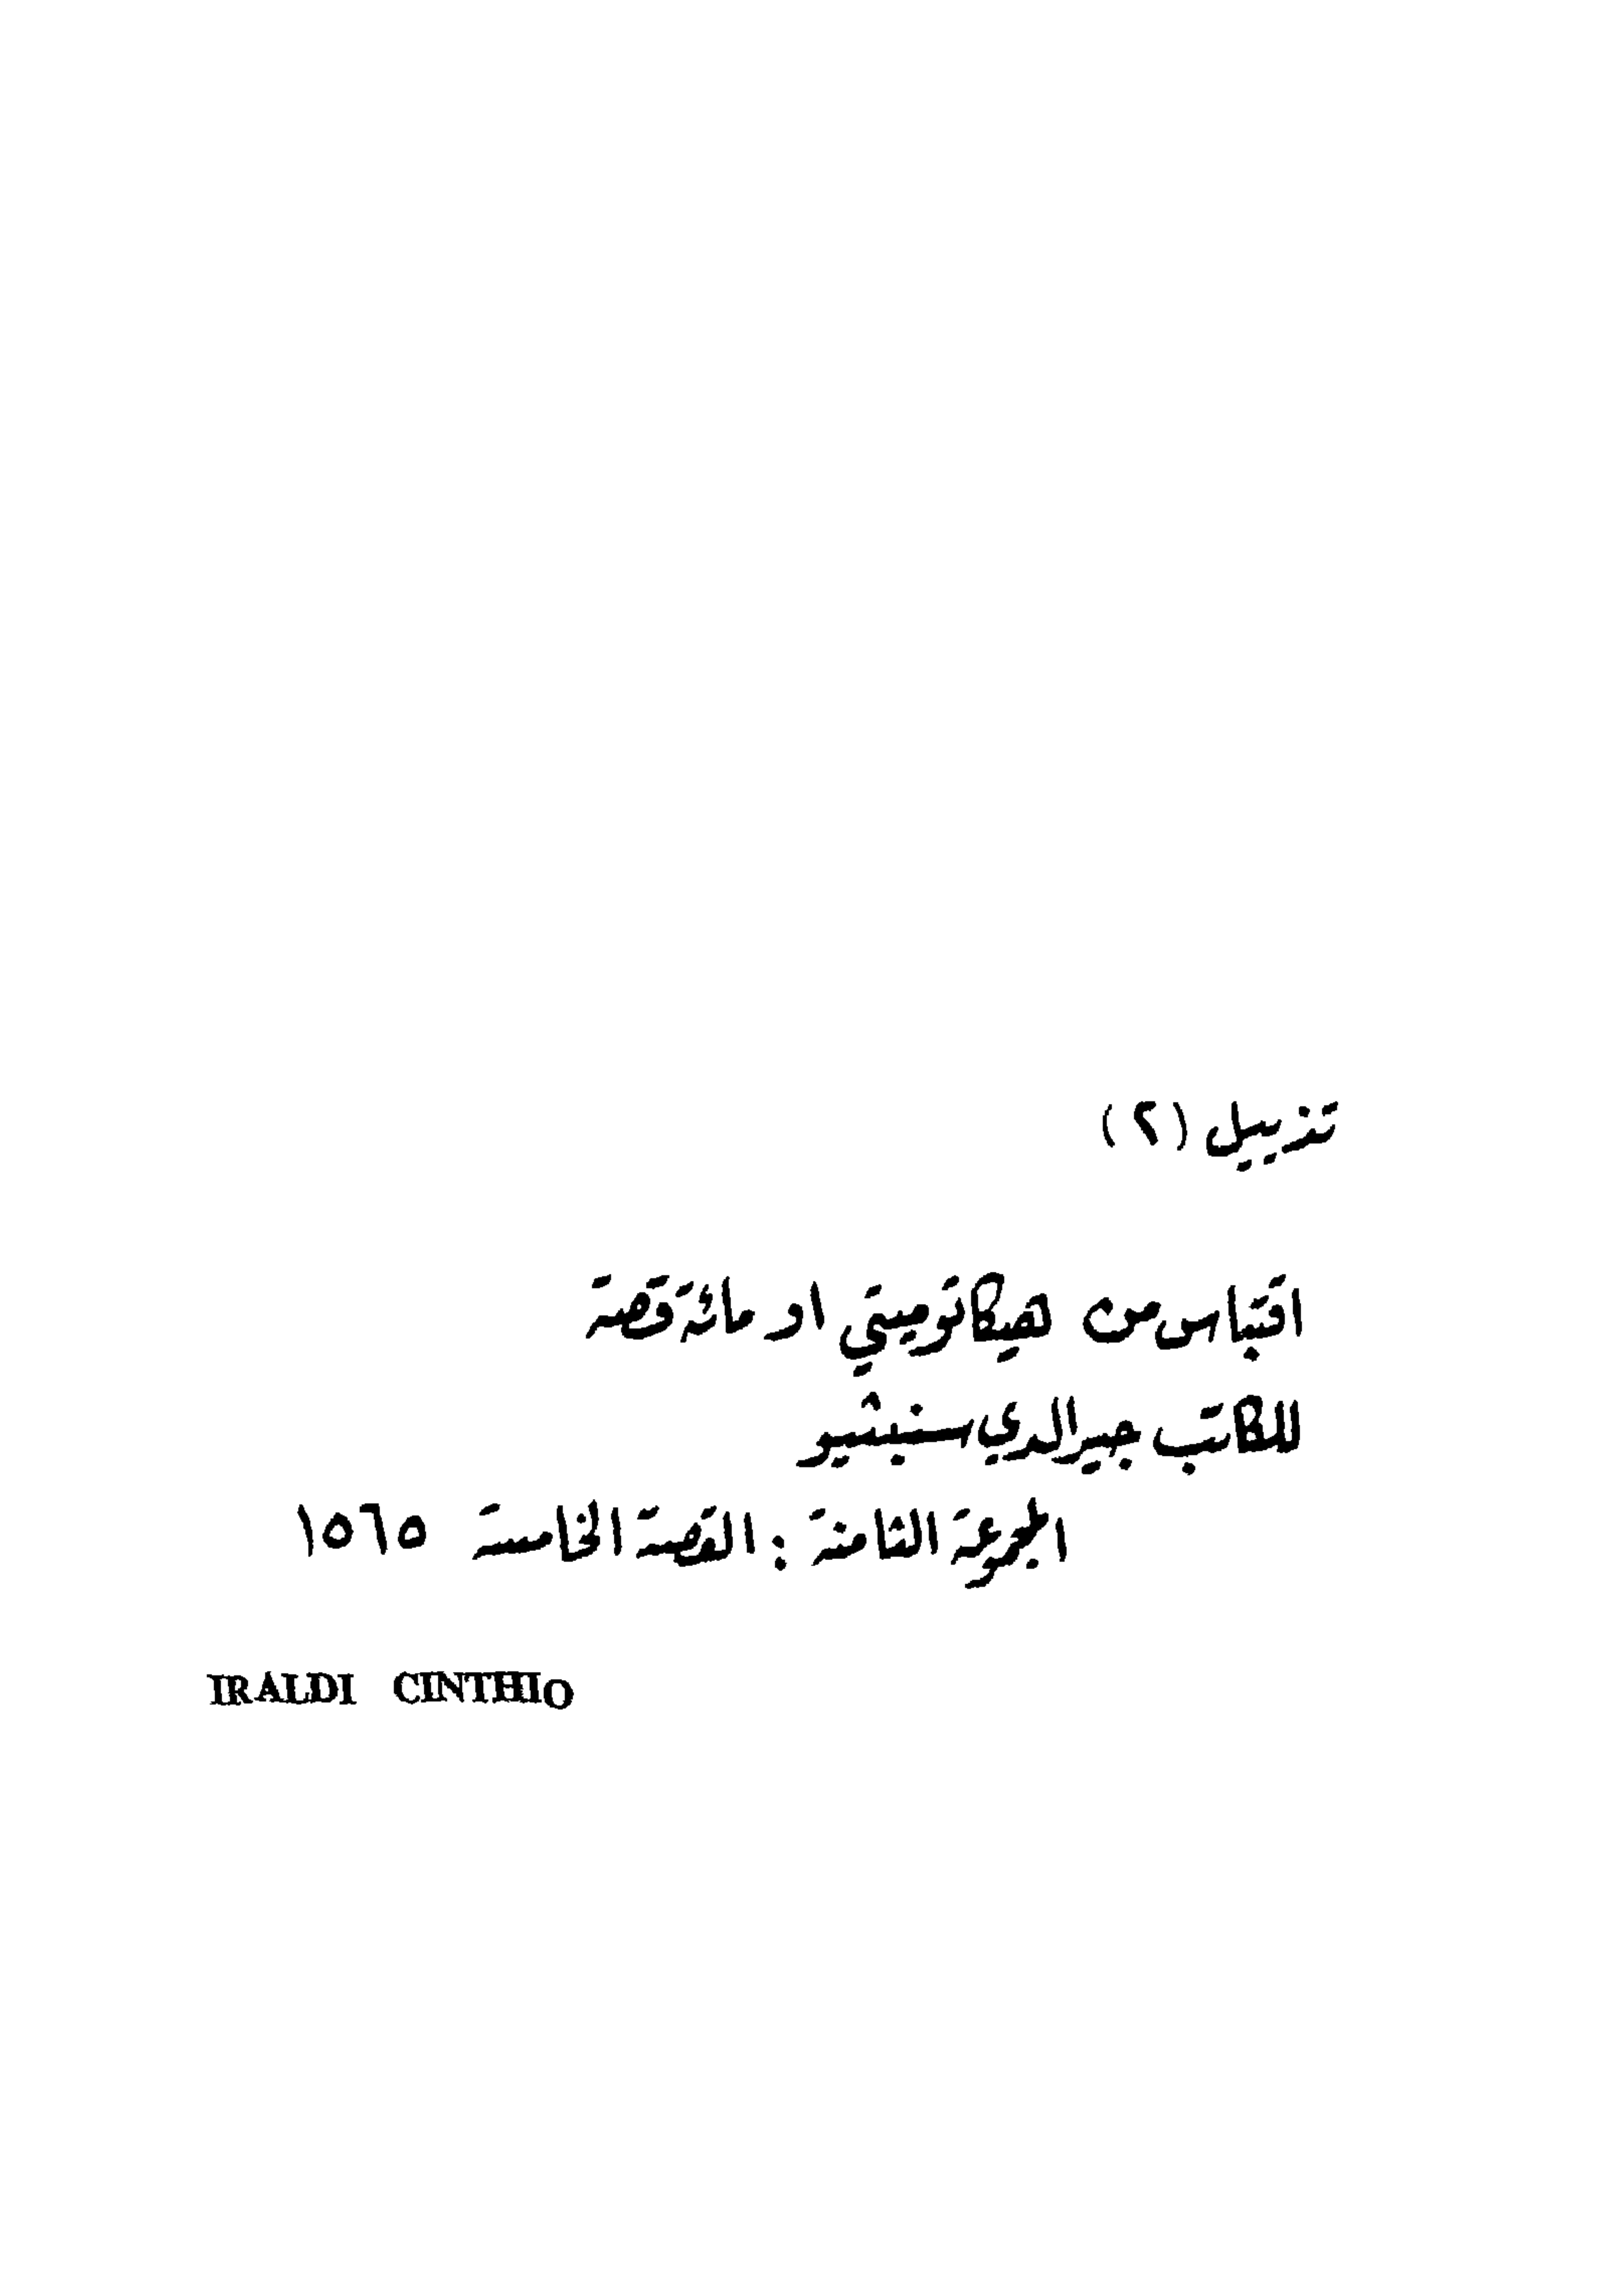 تذييل (٢)
اقتباس من هيكاتوميتي او مائة قصة
للكاتب جيرالدي سنيثيو
المجموعة الثامنة : القصة الخامسة ١٥٦٥
IRALDI CINTHIO